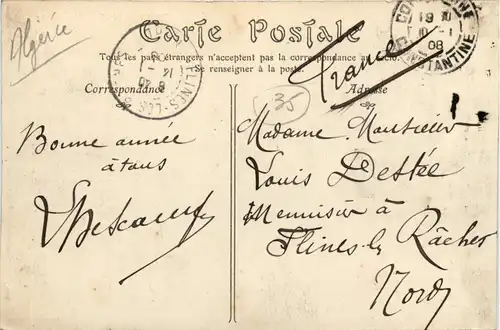 Algérie
Carte Postale
Tous les pays étrangers n'acceptent pas la correspondance au recto.
Se renseigner à la poste.
Correspondance
Adresse
France
35
CONSTANTINE
08
CONSTANTINE
Bonne année
à tous
Madame Monsieur
Louis Destée
Menuisier à
Flines-le
Râches
Nord